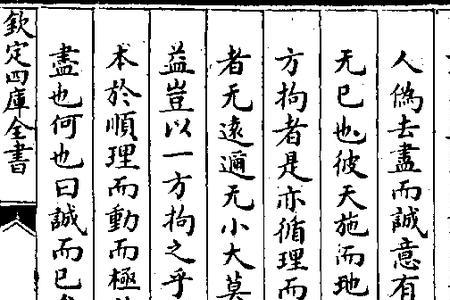 人偽去盡而誠意有
无已也彼天施而地
方拘者是亦循理而
者无遠邇无小大莫
益豈以一方拘之乎
本於順理而動而極
盡也何也曰誠而已
欽定四庫全書